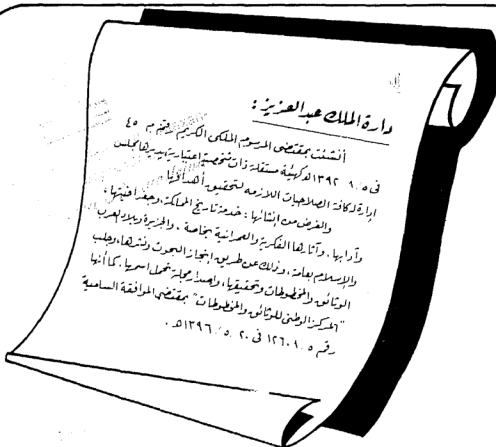 دارة الملك عبدالعزيز :
أنشئت بمقتضى المرسوم الملكي الكريم رقم م ٤٥
في ٥ / ٨ / ١٣٩٢ هـ كهيئة مستقلة ذات شخصية إعتبارية يديرها مجلس
إدارة له كافة الصلاحيات اللازمة لتحقيق أهدافها .
والغرض من إنشائها : خدمة تاريخ المملكة وجغرافيتها ،
وآدابها ، وآثارها الفكرية والعمرانية بخاصة ، والجزيرة وبلاد العرب
والإسلام بعامة ، وذلك عن طريق إنجاز البحوث ونشرها ، وجلب
الوثائق والمخطوطات وتحقيقها ، وإصدار مجلة تحمل اسمها . كما أنها
"المركز الوطني للوثائق والمخطوطات" بمقتضى الموافقة السامية
رقم ٥ / ١٢٦٠٨ في ٢٠ / ٥ / ١٣٩٦ هـ .